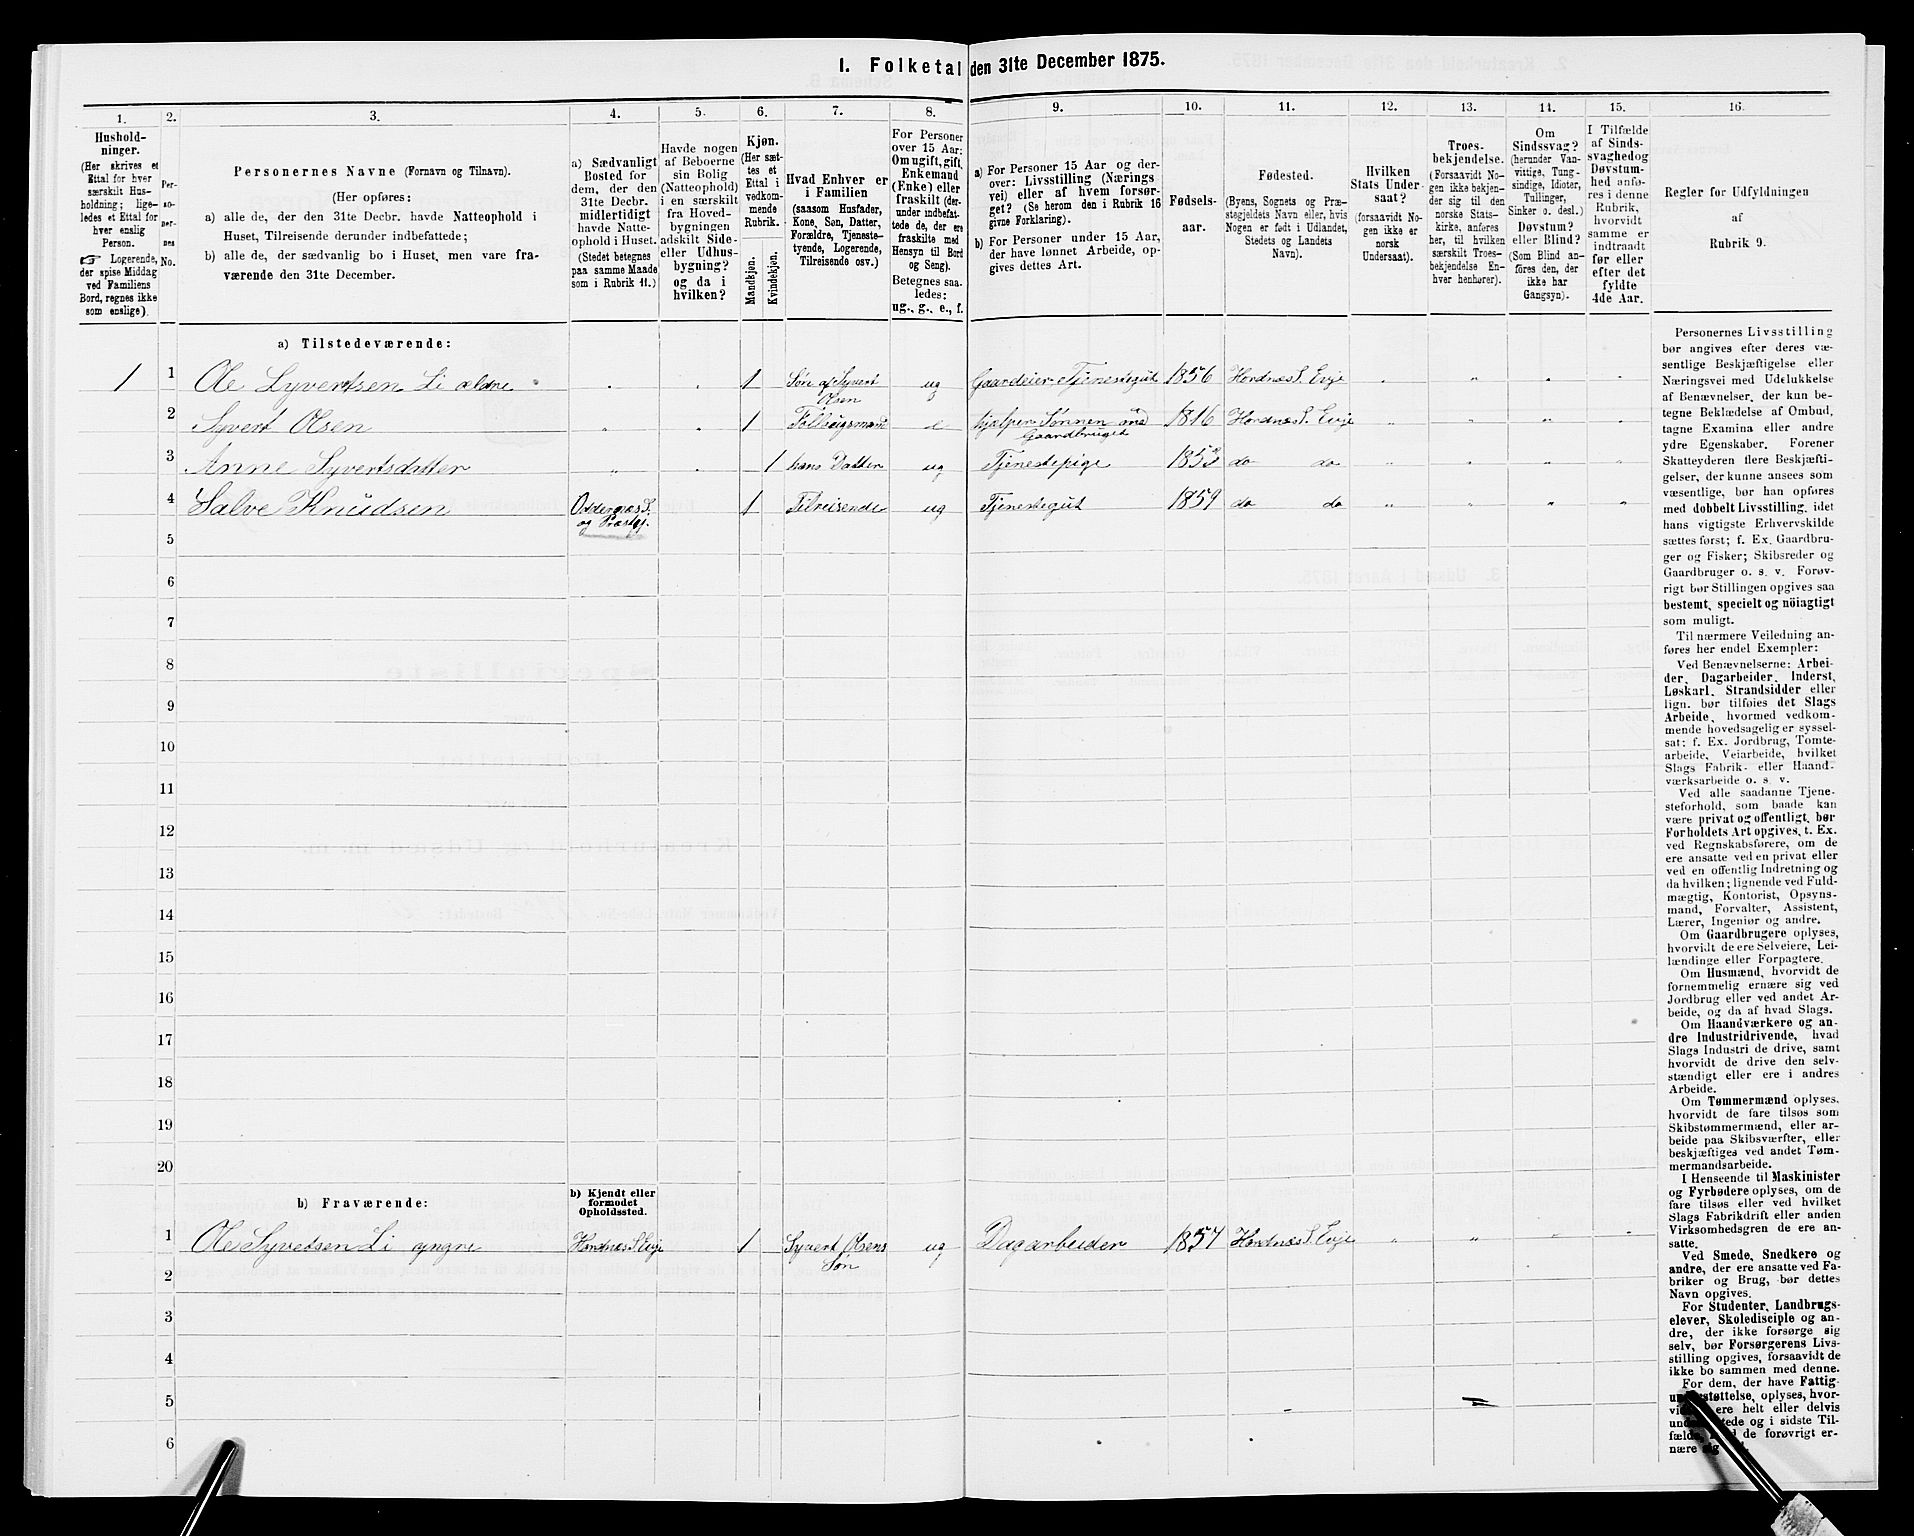 I. Folketal den 31te December 1875.
1. 2. 3. 4. 5. 6. 7. 8. 9. 10. 11. 12. 13. 14. 15. 16.
Hushold-
ninger.
(Her skrives et
Ettal for hver
særskilt Hus-
holdning; lige-
ledes et Ettal for
hver enslig
Person.
☞ Logerende,
der spise Middag
ved Familiens
Bord, regnes ikke
som enslige).
Per-
so-
ner-
nes
No.
Personernes Navne (Fornavn og Tilnavn).
(Her opføres:
a) alle de, der den 31te Decbr. havde Natteophold i
Huset, Tilreisende derunder indbefattede;
b) alle de, der sædvanlig bo i Huset, men vare fra-
værende den 31te December.
a) Sædvanligt
Bosted for
dem, der den
31te Decbr.
midlertidigt
havde Natte-
ophold i Huset.
(Stedet betegnes
paa samme Maade
som i Rubrik 11.)
Havde nogen
af Beboerne
sin Bolig
(Natteophold)
i en særskilt
fra Hoved-
bygningen
adskilt Side-
eller Udhus-
bygning?
og da i
hvilken?
Kjøn.
(Her sæt-
tes et
Ettal i
vedkom-
mende
Rubrik.
Mandkjøn.
Kvindekjøn.
Hvad Enhver er
i Familien
(saasom Husfader,
Kone, Søn, Datter,
Forældre, Tjeneste-
tyende, Logerende,
Tilreisende osv.)
For Personer
over 15 Aar:
Om ugift, gift,
Enkemand
(Enke) eller
fraskilt (der-
under indbefat-
tede de, der ere
fraskilte med
Hensyn til Bord
og Seng).
Betegnes saa-
ledes:
ug., g., e., f.
a) For Personer 15 Aar og der-
over: Livsstilling (Nærings
vei) eller af hvem forsør-
get? (Se herom den i Rubrik 16
givne Forklaring).
b) For Personer under 15 Aar,
der have lønnet Arbeide, op-
gives dettes Art.
Fødsels-
aar.
Fødested.
(Byens, Sognets og Præ-
stegjeldets Navn eller, hvis
Nogen er født i Udlandet,
Stedets og Landets
Navn).
Hvilken
Stats Under-
saat?
(forsaavidt No-
gen ikke er
norsk
Undersaat).
Troes-
bekjendelse.
(Forsaavidt No-
gen ikke bekjen-
der sig til den
norske Stats-
kirke, anføres
her, til hvilken
særskilt Troes-
bekjendelse En-
hver henhører).
Om
Sindssvag?
(herunder Van-
vittige, Tung-
sindige, Idioter,
Tullinger,
Sinker o. desl.)
Døvstum?
eller Blind?
(Som Blind an-
føres den, der
ikke har
Gangsyn).
I Tilfælde
af Sinds-
svaghed og
Døvstum-
hed anfø-
res i denne
Rubrik,
hvorvidt
samme er
indtraadt
før eller
efter det
fyldte
4de Aar.
Regler for Udfyldningen
af
Rubrik 9.
a) Tilstedeværende:
1 1 Ole Syvertsen Li ældre " " 1 Søn af Syvert Olsen ug Gaardeier Tjenestegut 1856 Hordnæs S. Evje " " " "
2 Syvert Olsen " " 1 Folloeigsmand e hjælper Sønnen med Gaardbruget 1816 Hordnæs S. Evje " " " "
3 Anne Syvertsdatter " " 1 hans Datter ug Tjenestepige do do " " " "
4 Salve Knudsen Oddernæs S. og Præstgj. 1 Tilreisende ug Tjenestegut 1859 do do " " " "
5
6
7
8
9
10
11
12
13
14
15
16
17
18
19
20
b) Fraværende:
b) Kjendt eller
formodet
Opholdssted.
1 Ole Syvetsen Li yngre Hordnæs S. Evje 1 Syvert Olsens Søn ug Dagarbeider 1857 Hordnæs S. Evje " " " "
2
3
4
5
6
Personernes Livsstilling
bør angives efter deres væ-
sentlige Beskjæftigelse eller
Næringsvei med Udelukkelse
af Benævnelser, der kun be-
tegne Beklædelse af Ombud,
tagne Examina eller andre
ydre Egenskaber. Forener
Skatteyderen flere Beskjæfti-
gelser, der kunne ansees som
væsentlige, bør han opføres
med dobbelt Livsstilling, idet
hans vigtigste Erhvervskilde
sættes først; f. Ex. Gaardbru-
ger og Fisker; Skibsreder og
Gaardbruger o. s. v. Forøv-
rigt bør Stillingen opgives saa
bestemt, specielt og nøiagtigt
som muligt.
Til nærmere Veiledning an-
føres her endel Exempler:
Ved Benævnelserne: Arbei-
der, Dagarbeider, Inderst,
Løskarl, Strandsidder eller
lign. bør tilføies det Slags
Arbeide, hvormed vedkom-
mende hovedsagelig er syssel-
sat; f. Ex. Jordbrug, Tomte-
arbeide, Veiarbeide, hvilket
Slags Fabrik- eller Haand-
værksarbeide o. s. v.
Ved alle saadanne Tjene-
steforhold, som baade kan
være privat og offentligt, bør
Forholdets Art opgives, t. Ex.
ved Regnskabsførere, om de
ere ansatte ved en privat eller
ved en offentlig Indretning og
da hvilken; lignende ved Fuld-
mægtig, Kontorist, Opsyns-
mand, Forvalter, Assistent,
Lærer, Ingeniør og andre.
Om Gaardbrugere oplyses,
hvorvidt de ere Selveiere, Lei-
lændinge eller Forpagtere.
Om Husmænd, hvorvidt de
fornemmelig ernære sig ved
Jordbrug eller ved andet Ar-
beide, og da af hvad Slags.
Om Haandværkere og an-
dre Industridrivende, hvad
Slags Industri de drive, samt
hvorvidt de drive den selv-
stændigt eller ere i andres
Arbeide.
Om Tømmermænd oplyses,
hvorvidt de fare tilsøs som
Skibstømmermænd, eller ar-
beide paa Skibsværfter, eller
beskjæftiges ved andet Tøm-
mermandsarbeide.
I Henseende til Maskinister
og Fyrbødere oplyses, om de
fare tilsøs eller ved hvilket
Slags Fabrikdrift eller anden
Virksomhedsgren de ere an-
satte.
Ved Smede, Snedkere og
andre, der ere ansatte ved Fa-
briker og Brug, bør dettes
Navn opgives.
For Studenter, Landbrugs-
elever, Skoledisciple og an-
dre, der ikke forsørge sig
selv, bør Forsørgerens Livs-
stilling opgives, forsaavidt de
ikke bo sammen med denne.
For dem, der have Fattig-
understøttelse, oplyses, hvor-
ere helt eller delvis
og i sidste Til-
fælde, de forøvrigt er-
nære sig